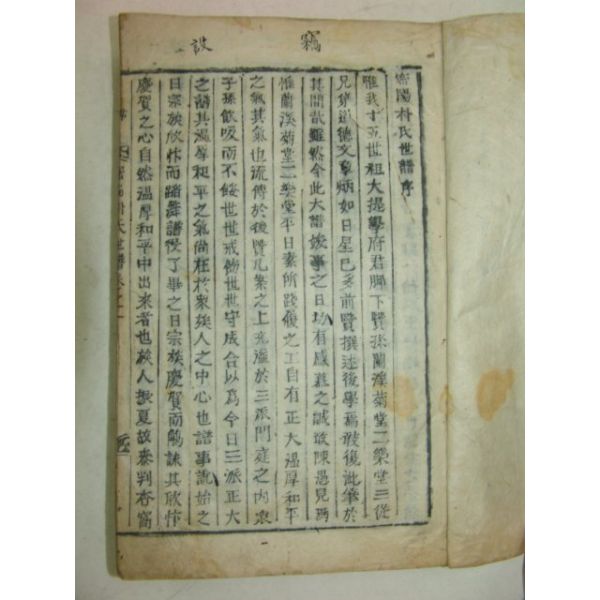 竊 設
密陽朴氏世譜序
惟我十五世祖大提學府君脚下賢孫蘭溪菊堂二樂堂三從
兄弟道德文章炳如日星已多前賢撰述後學焉敢復泚筆於
其間哉雖然今此大譜竣事之日切有感激之誠敢陳愚見焉
惟蘭溪菊堂二樂堂平日素所踐履之工自有正大溫厚和平
之氣其氣也流傳於後賢几案之上充溢於三派門庭之內衆
子孫飮吸而不餒世世戒飭世世守成合以爲今日三派正大
之譜其溫厚和平之氣尚在於衆族人之中心也譜事訖始之
日宗族欣忭而踏舞譜役了畢之日宗族慶賀而觴詠其欣忭
慶賀之心自然溫厚和平中出來者也族人振夏故泰判杏窩
密陽朴氏世譜卷之一